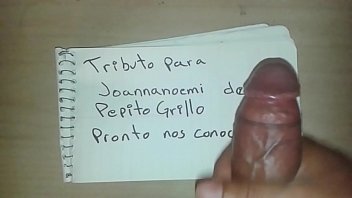 Tributo para
Joannanoemi de
Pepito Grillo
Pronto nos